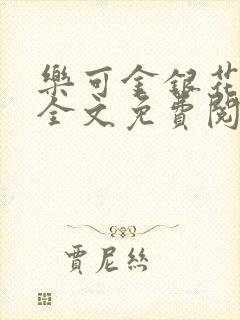 樂可金銀花
全文免費閱
賈尼絲